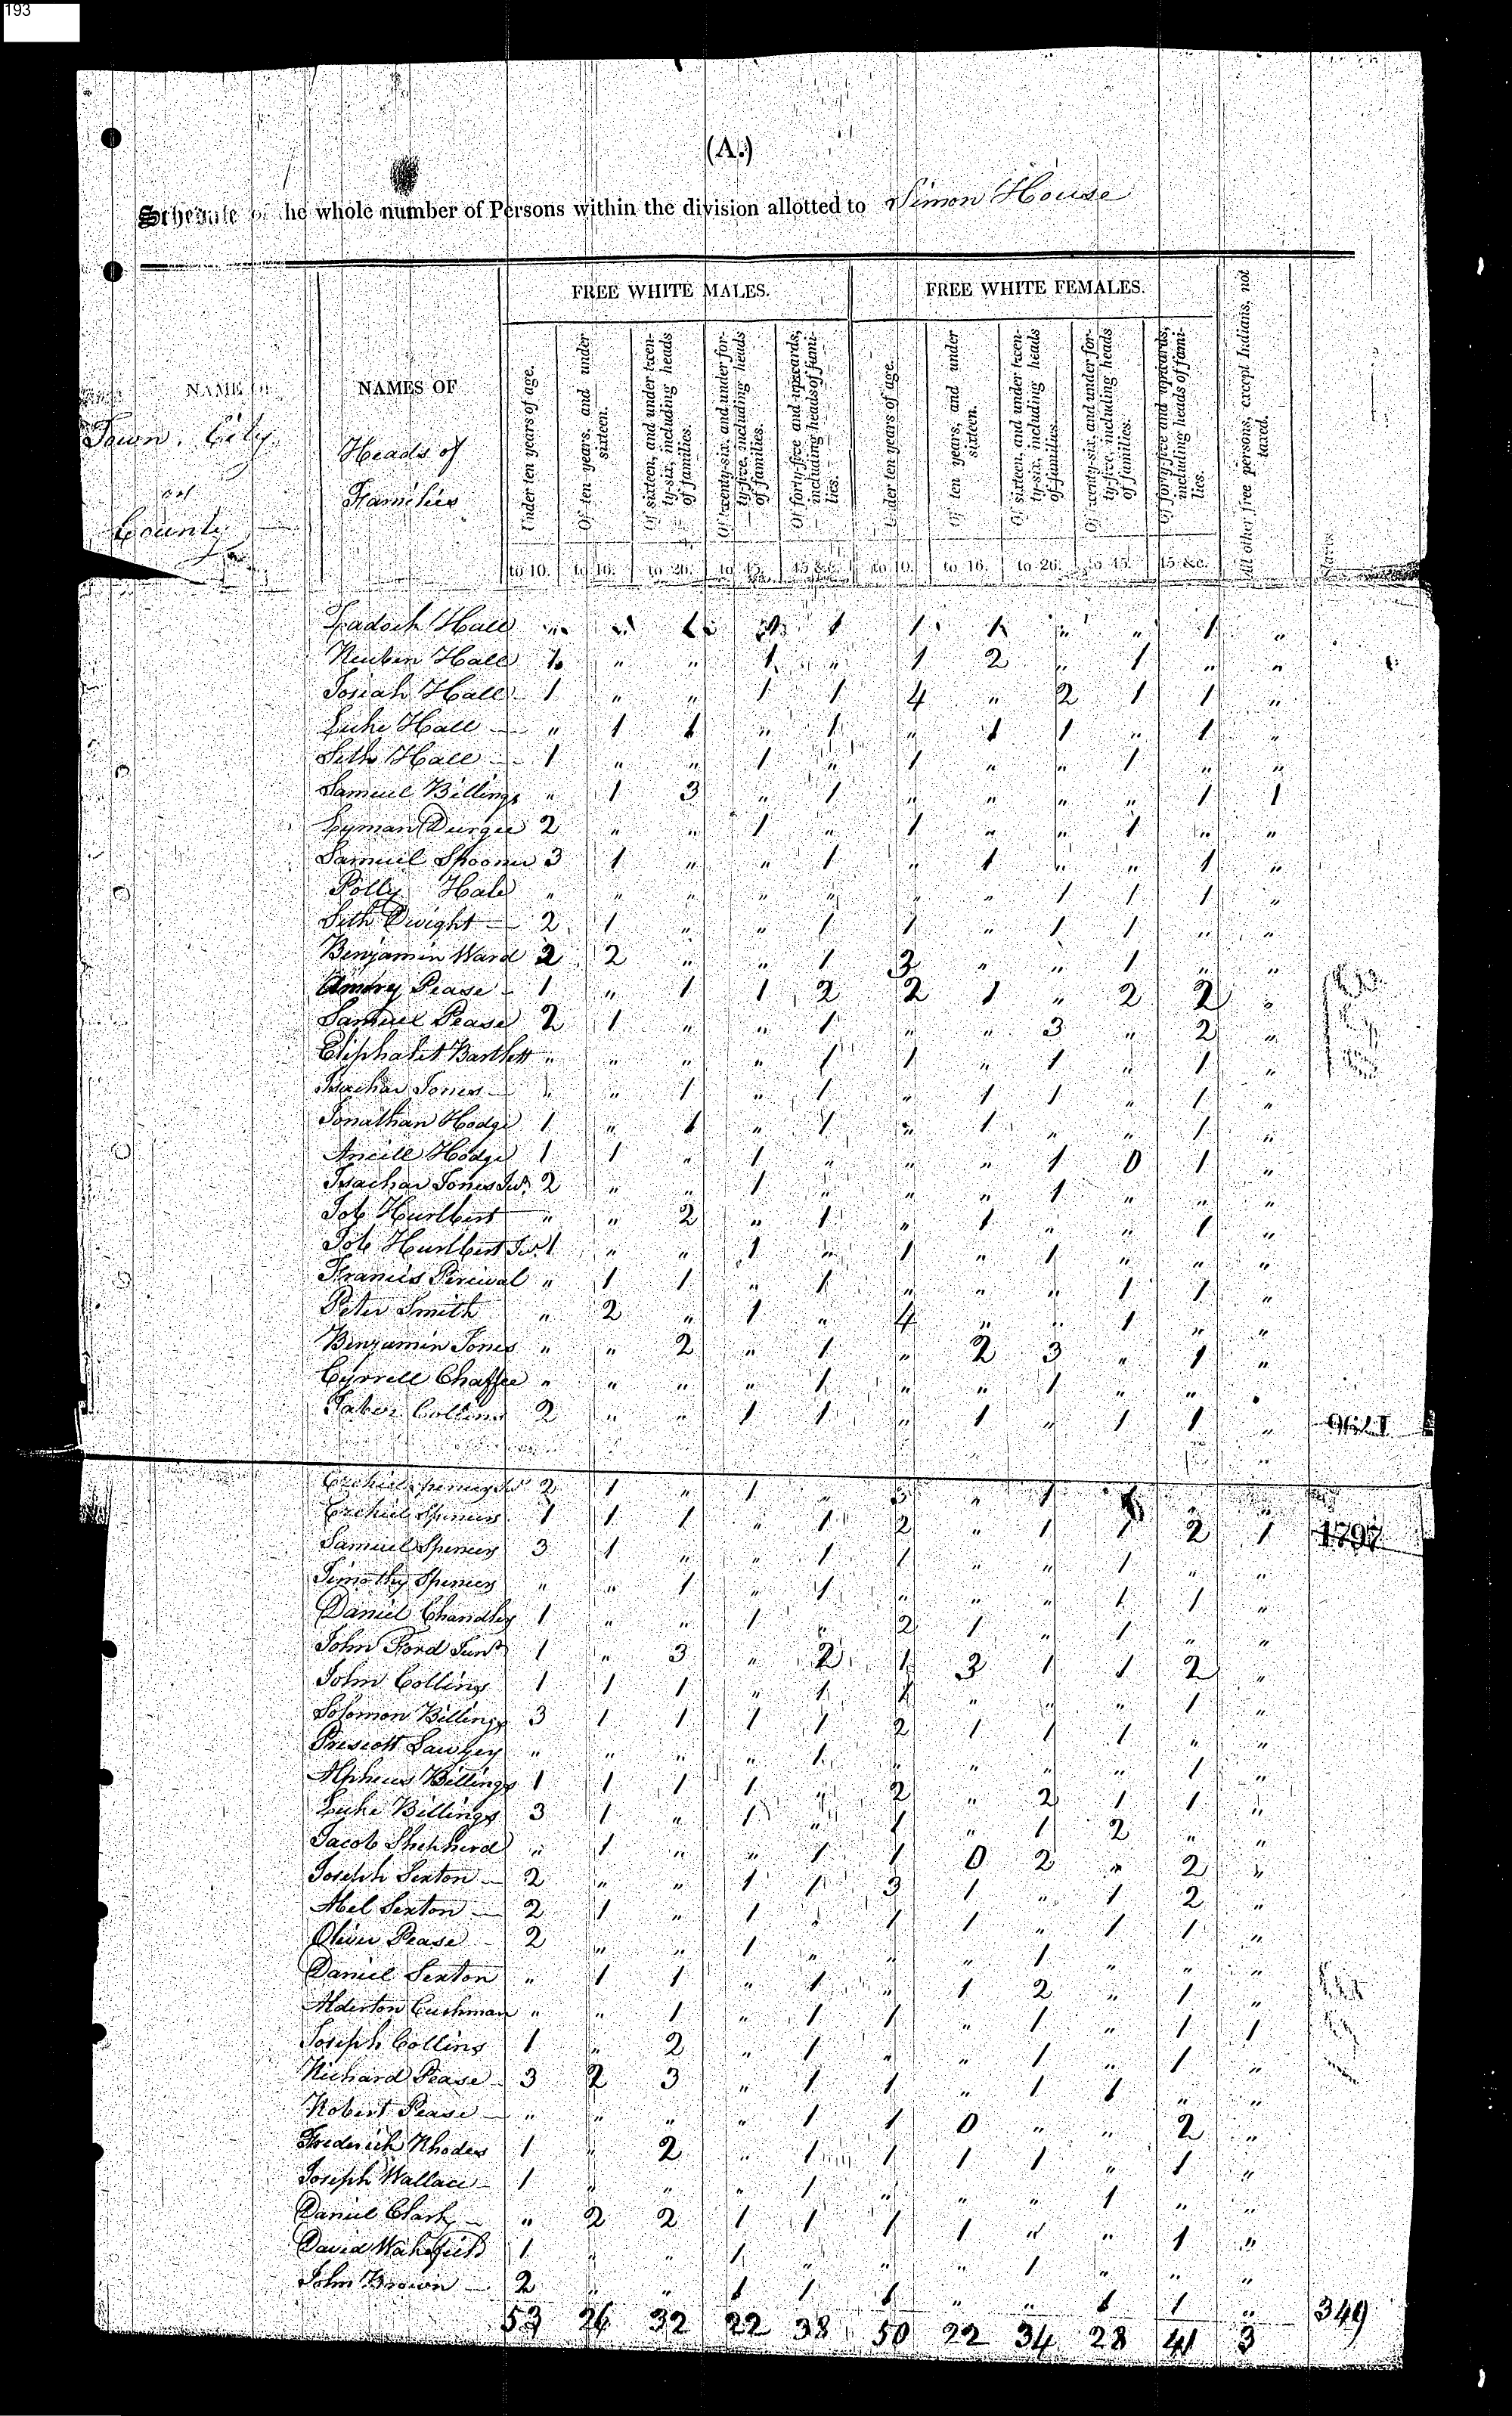 193
(A.)
Schedule of the whole number of Persons within the division allotted to Simon House
FREE WHITE MALES. FREE WHITE FEMALES.
NAME OF Town, City or County
NAMES OF Heads of Families
Under ten years of age. Of ten years, and under sixteen. Of sixteen, and under twenty-six, including heads of families. Of twenty-six, and under forty-five, including heads of families. Of forty-five and upwards, including heads of families. Under ten years of age. Of ten years, and under sixteen. Of sixteen, and under twenty-six, including heads of families. Of twenty-six, and under forty-five, including heads of families. Of forty-five and upwards, including heads of families. All other free persons, except Indians, not taxed. Slaves.
to 10. to 16. to 26. to 45. 45 &c. to 10. to 16. to 26. to 45. 45 &c.
Zadock Hall " " 1 " 1 1 1 " " 1 "
Reuben Hall 1 " " 1 " 1 2 " 1 " "
Josiah Hall 1 " " 1 1 4 " 2 1 1 "
Luke Hall " 1 1 " 1 " 1 1 " 1 "
Seth Hall 1 " " 1 " 1 " " 1 " "
Samuel Billings " 1 3 " 1 " " " " 1 1
Lyman Durgee 2 " " 1 " 1 " " 1 " "
Samuel Spooner 3 1 " " 1 " 1 " " 1 "
Polly Hale " " " " " " " 1 1 1 "
Seth Dwight 2 1 " " 1 1 " 1 1 " "
Benjamin Ward 2 2 " " 1 3 " " 1 " "
Amory Pease 1 " 1 1 2 2 1 " 2 2 "
Samuel Pease 2 1 " " 1 " " 3 " 2 "
Eliphalet Bartlett " " " " 1 1 " 1 " 1 "
Isachar Jones " 1 " 1 " 1 1 " 1 "
Jonathan Hodge 1 " 1 " 1 " 1 " " 1 "
Ancill Hodge 1 1 " 1 " " " 1 0 1 "
Isachar Jones Jur. 2 " " 1 " " " 1 " " "
Job Hurlbert " " 2 " 1 " 1 " " 1 "
Job Hurlbert Jur. 1 " " 1 " 1 " 1 " " "
Francis Percival " 1 1 " 1 " " " 1 1 "
Peter Smith " 2 " 1 " 4 " " 1 " "
Benjamin Jones " " 2 " 1 " 2 3 " 1 "
Cyrrell Chaffee " " " " 1 " " 1 " "
Taber Collins 2 " " 1 1 " 1 " 1 1 "
1796
Ezekiel Spencer Jur 2 1 " 1 " " 1 " "
Ezekiel Spencer 1 1 1 " 1 2 " 1 1 2 1 1797
Samuel Spencer 3 1 " " 1 1 " " 1 " "
Timothy Spencer " " 1 " 1 " " " 1 1 "
Daniel Chandler 1 " " 1 " 2 1 " 1 " "
John Ford Junr 1 " 3 " 2 1 3 1 1 2 "
John Collins 1 1 1 " 1 1 " " " 1 "
Solomon Billings 3 1 1 1 1 2 1 1 1 " "
Prescott Sawyer " " " " 1 " " " " 1 "
Alpheus Billings 1 1 1 1 " 2 " 2 1 1 "
Luke Billings 3 1 " 1 " 1 " 1 2 " "
Jacob Shepherd " 1 " " 1 1 0 2 " 2 "
Joseph Sexton 2 " " 1 1 3 1 " 1 2 "
Abel Sexton 2 1 " 1 " 1 1 " 1 1 "
Oliver Pease 2 " " 1 " " " 1 " " "
Daniel Sexton " 1 1 " 1 " 1 2 " 1 "
Alderton Cushman " " 1 " 1 1 " 1 " 1 1
Joseph Collins 1 " 2 " 1 " " 1 " 1 "
Richard Pease 3 2 3 " 1 1 " 1 1 " "
Robert Pease " " " " 1 1 0 " " 2 "
Frederick Rhodes 1 " 2 " 1 1 1 1 " 1 "
Joseph Wallace 1 " " " 1 " " " 1 " "
Daniel Clark " 2 2 1 1 1 1 " " 1 "
David Wakefield 1 " " 1 " " " 1 " " "
John Brown 2 " " 1 1 1 " " 1 1 "
53 26 32 22 38 50 22 34 28 41 3 349